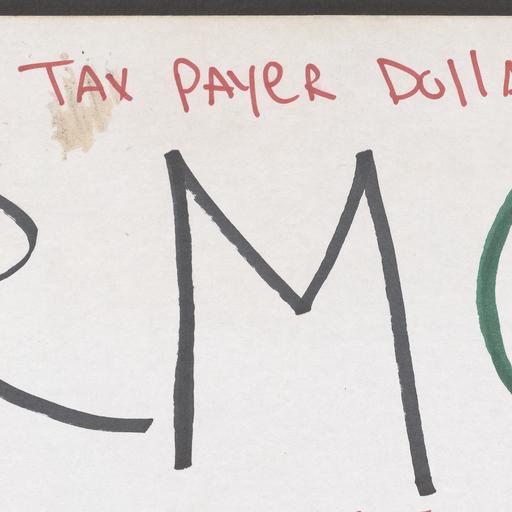 TAX PAYER Doll
RM